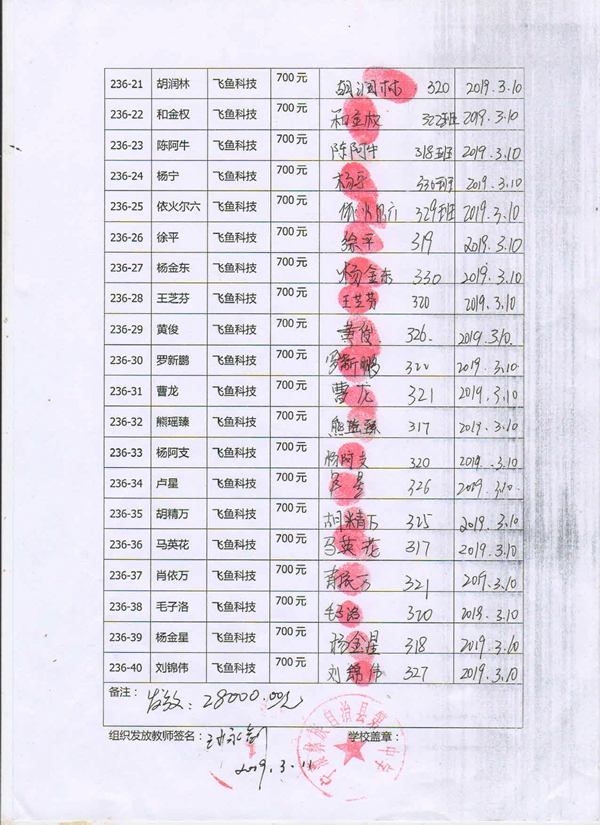 236-21 胡润林 飞鱼科技 700元 胡润林 320 2019.3.10
236-22 和金权 飞鱼科技 700元 和金权 322班 2019.3.10
236-23 陈阿牛 飞鱼科技 700元 陈阿牛 318班 2019.3.10
236-24 杨宁 飞鱼科技 700元 杨宁 330班 2019.3.10
236-25 依火尔六 飞鱼科技 700元 依火尔六 329班 2019.3.10
236-26 徐平 飞鱼科技 700元 徐平 319 2019.3.10
236-27 杨金东 飞鱼科技 700元 杨金东 330 2019.3.10
236-28 王芝芬 飞鱼科技 700元 王芝芬 320 2019.3.10
236-29 黄俊 飞鱼科技 700元 黄俊 326. 2019.3.10
236-30 罗新鹏 飞鱼科技 700元 罗新鹏 322 2019.3.10
236-31 曹龙 飞鱼科技 700元 曹龙 321 2019.3.10
236-32 熊瑶臻 飞鱼科技 700元 熊瑶臻 317 2019.3.10
236-33 杨阿支 飞鱼科技 700元 杨阿支 320 2019.3.10
236-34 卢星 飞鱼科技 700元 卢星 326 2019.3.10
236-35 胡精万 飞鱼科技 700元 胡精万 325 2019.3.10
236-36 马英花 飞鱼科技 700元 马英花 317 2019.3.10
236-37 肖依万 飞鱼科技 700元 肖依万 321 2019.3.10
236-38 毛子洛 飞鱼科技 700元 毛子洛 320 2019.3.10
236-39 杨金星 飞鱼科技 700元 杨金星 318 2019.3.10
236-40 刘锦伟 飞鱼科技 700元 刘锦伟 327 2019.3.10
备注： 发放：28000.00元
组织发放教师签名： 学校盖章：
2019.3.11